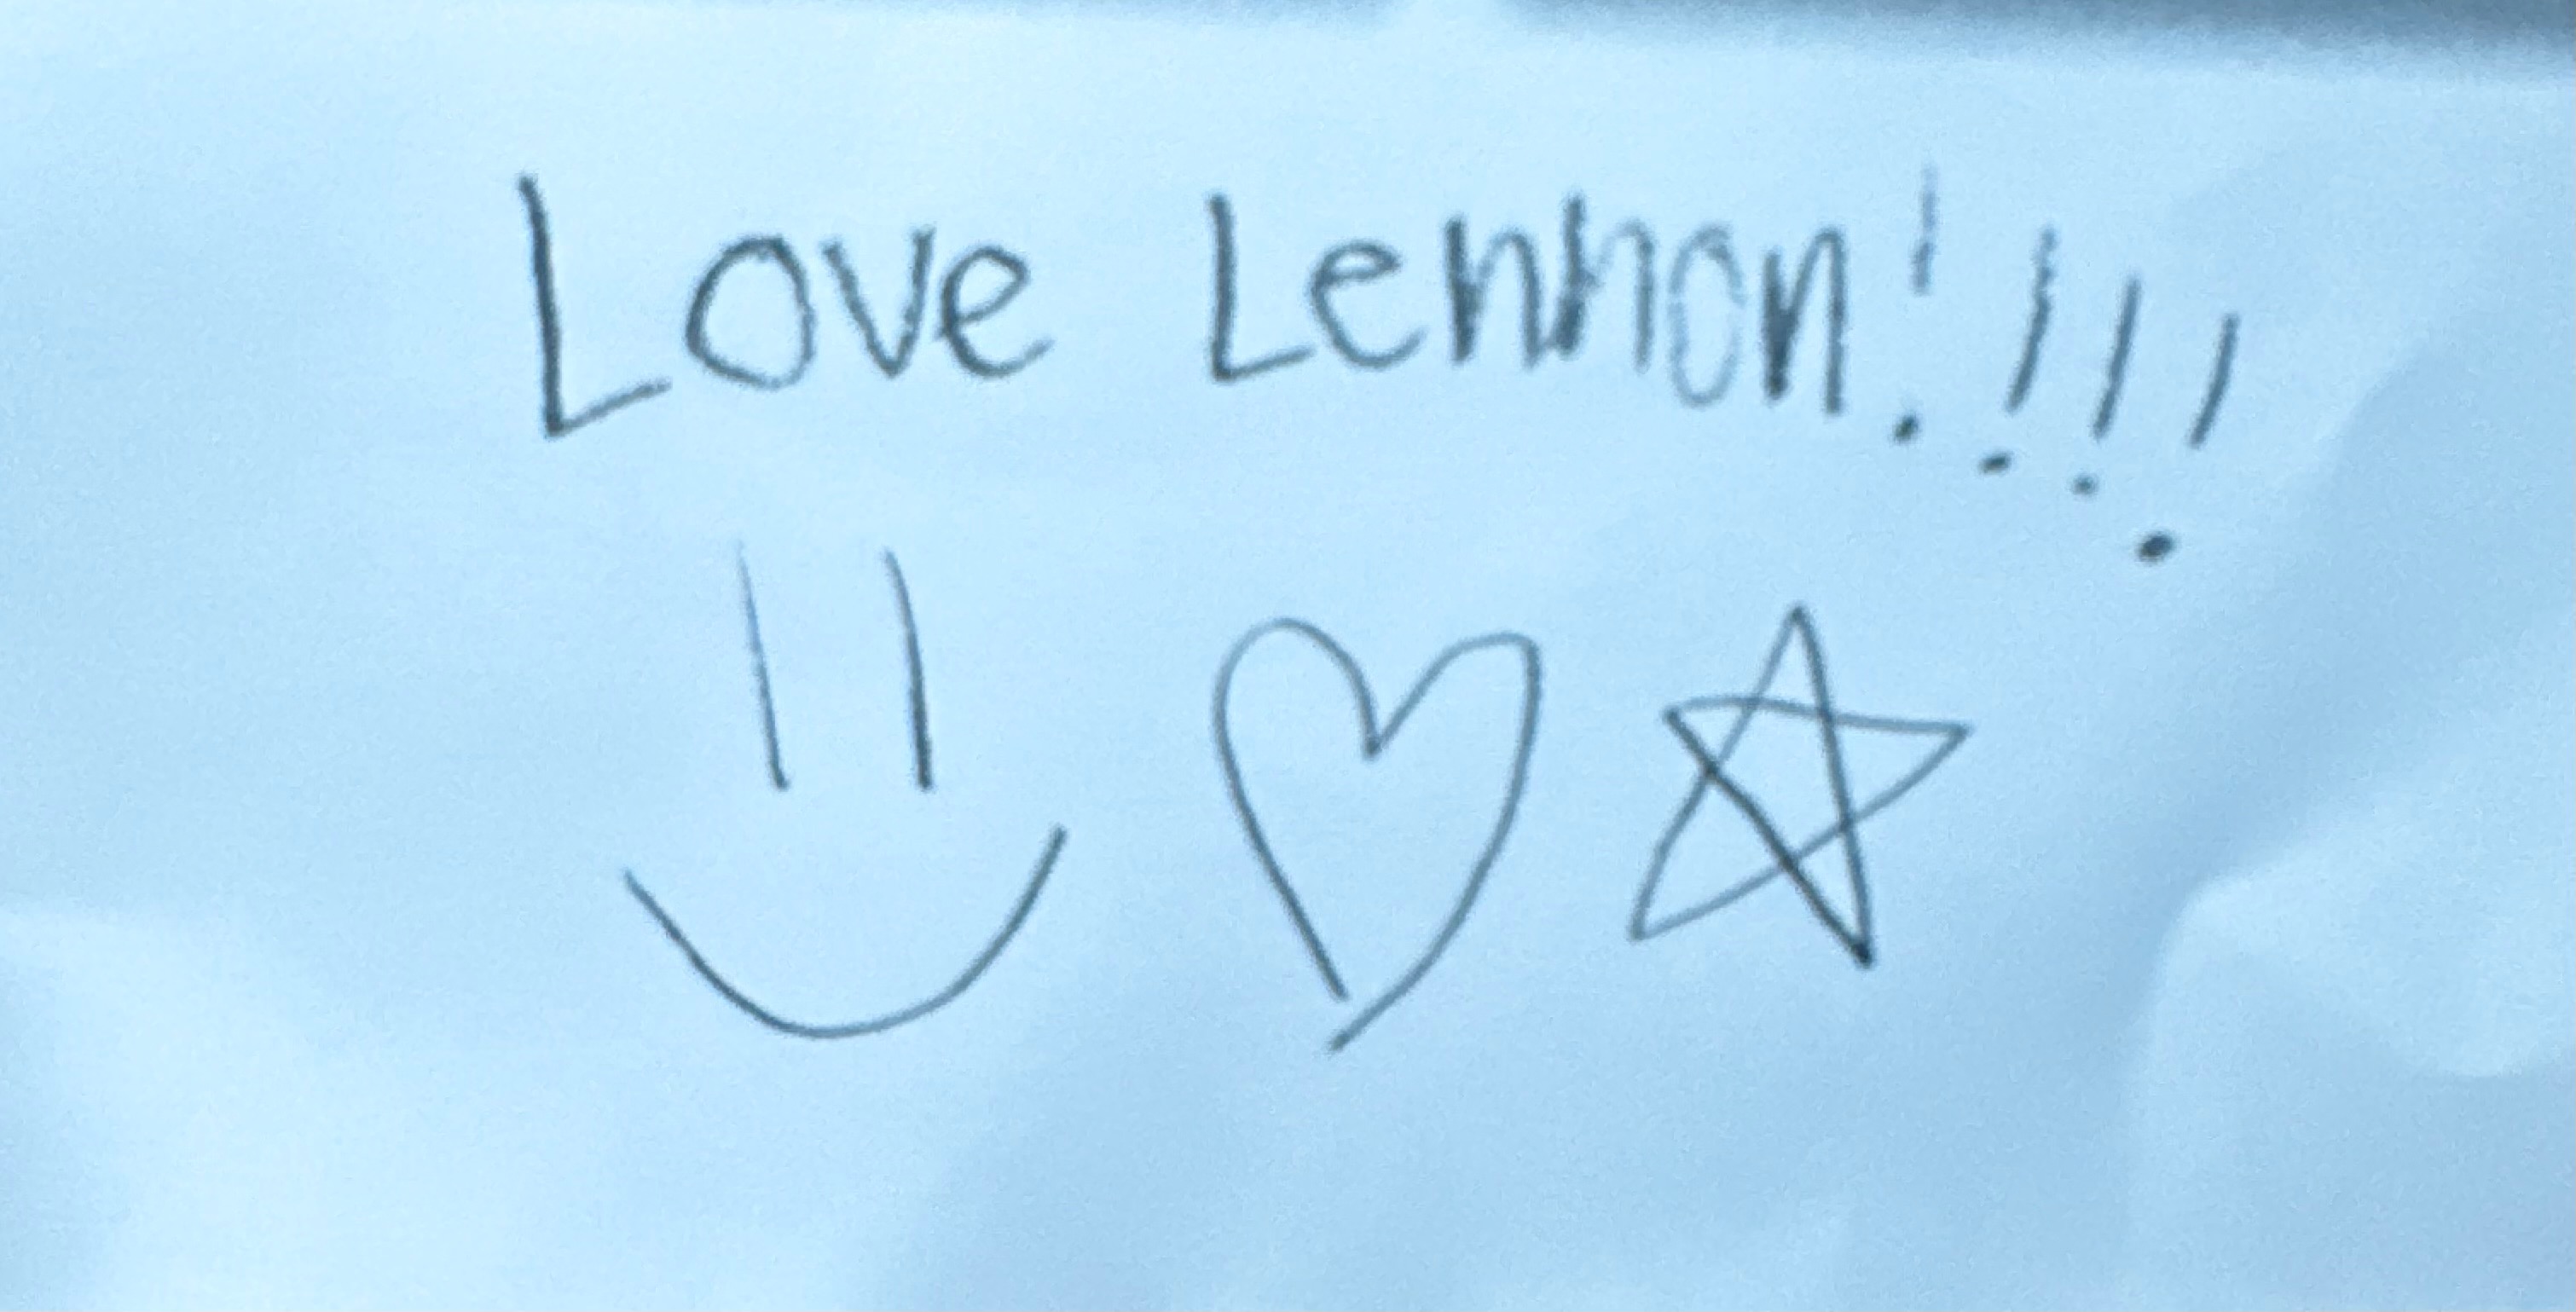 Love Lennon!!!!